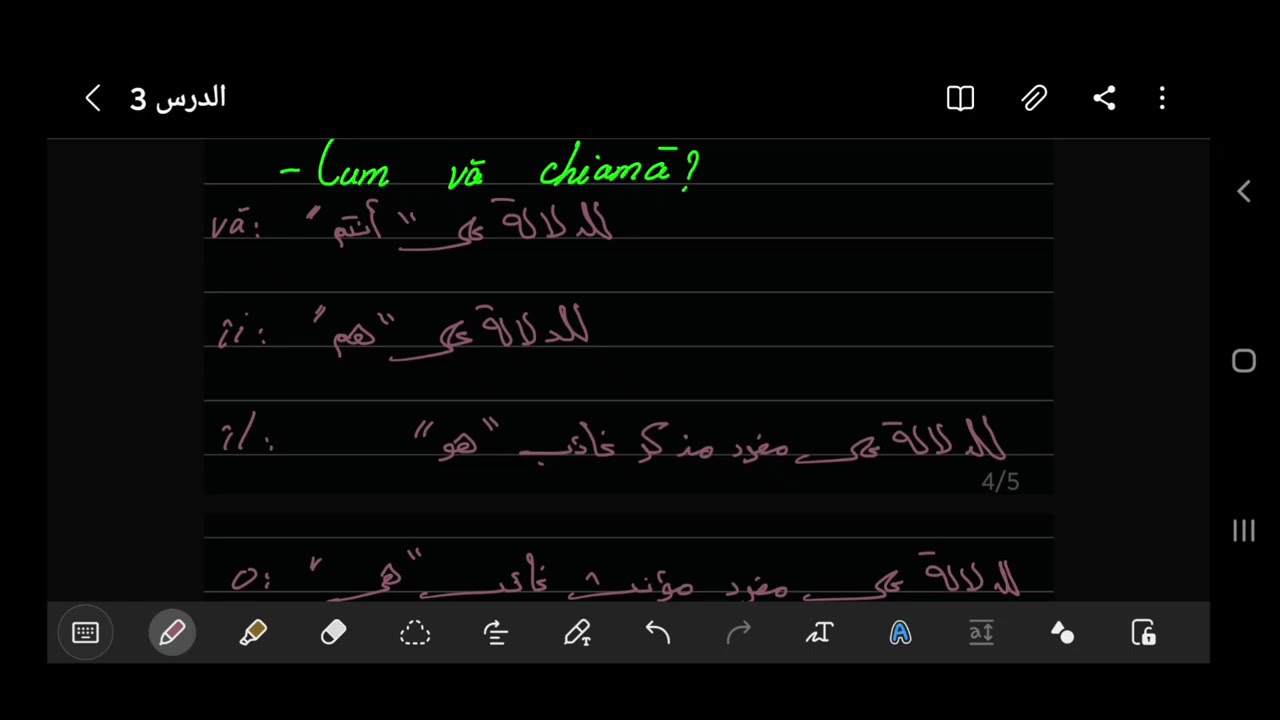 الدرس 3
- Cum vă chiamă?
vă: للدلالة على "أنتم"
îi: للدلالة على "هم"
îl: للدلالة على مفرد مذكر غائب "هو"
4/5
o: للدلالة على مفرد مؤنث غائب "هي"